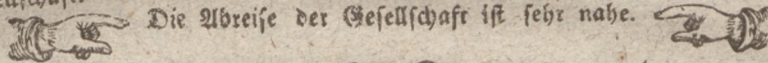 ☞ Die Abreiſe der Geſellſchaft iſt ſehr nahe. ☜